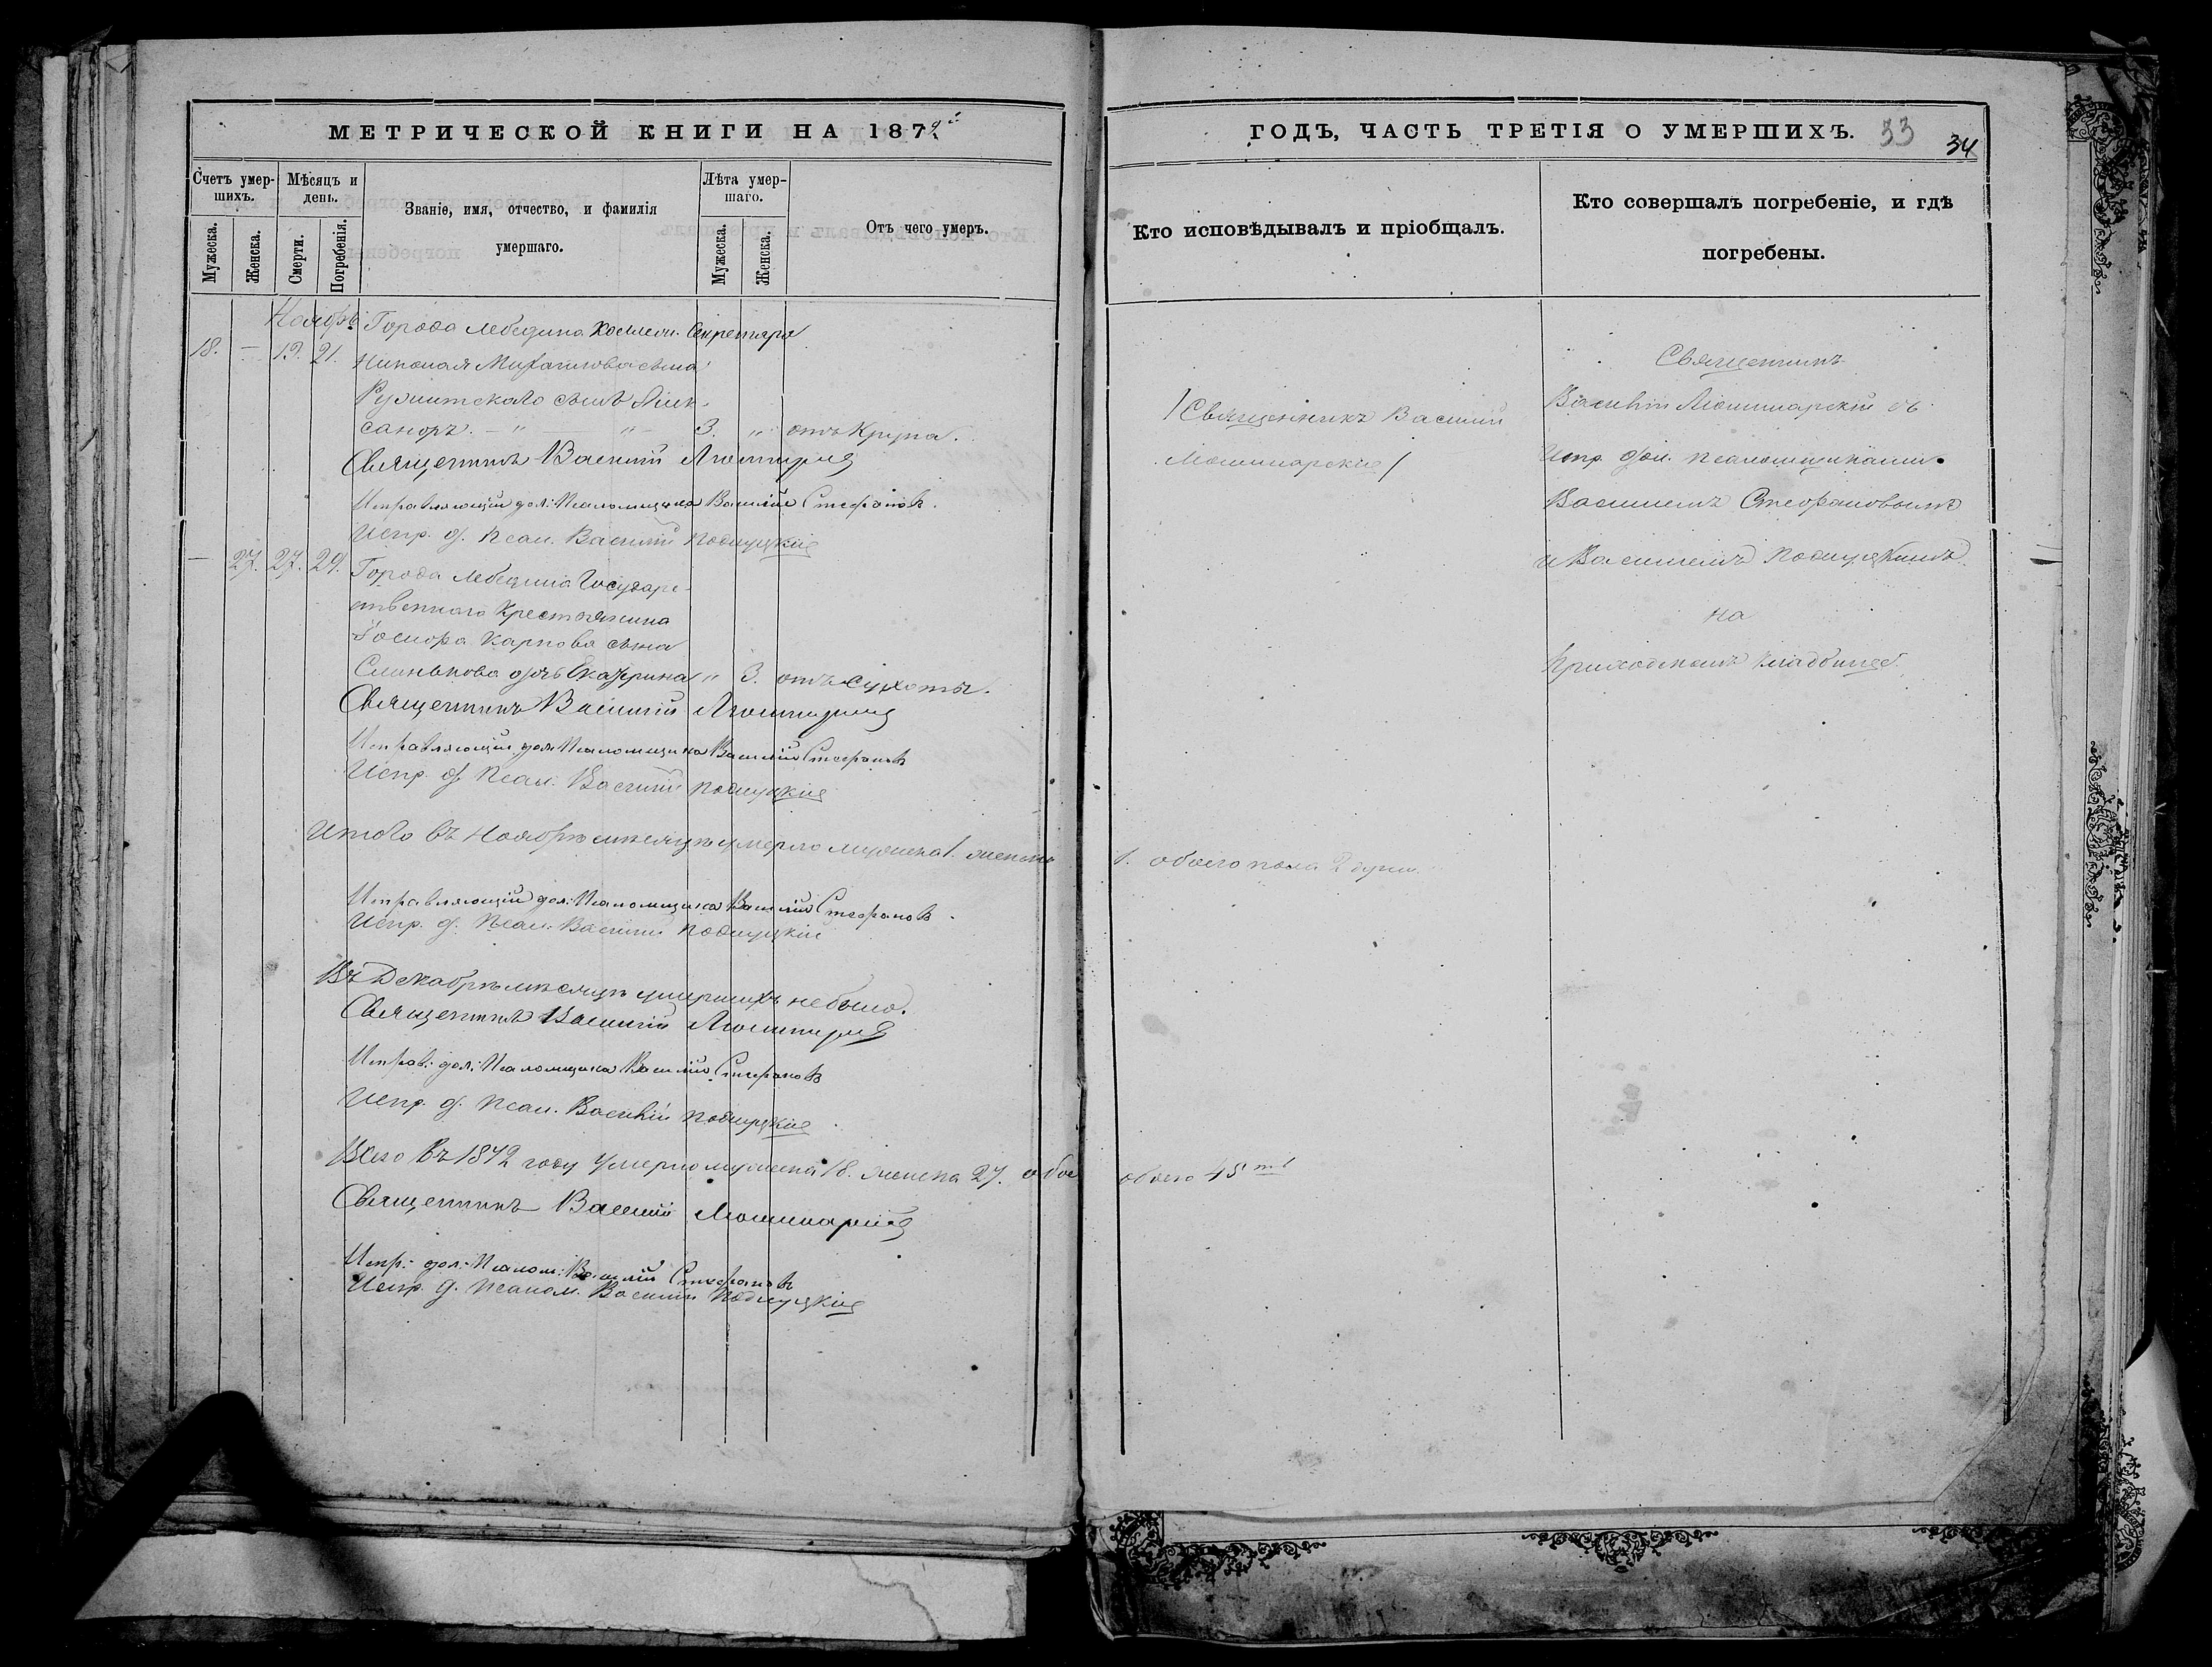 МЕТРИЧЕСКОЙ КНИГИ НА 1872й
Счетъ умершихъ.
Мужеска.
Женска.
Мѣсяцъ и день.
Смерти.
Погребенія.
Званіе, имя, отчество, и фамилія
умершаго.
Лѣта умершаго.
Мужеска.
Женска.
Отъ чего умеръ.
Ноябрь
18. — 19. 21.
Города Лебедина Коллеж. Секретаря
Николая Михайлова сына
сынъ Алек-
сандръ. — " — " — 3. " отъ Крупа.
Священникъ Василий
Исправляющій дол: Псаломщика Василій Стефановъ.
Испр. д. Псал. Василій Подлуцкій
— 27. 27. 29.
Города Лебедина Государ-
ственного Крестьянина
Іосифа Карпова сына
дочь Екатерина " 3. отъ Сухоты.
Священникъ Василій
Исправляющій дол: Псаломщика Василій Стефановъ
Испр. д. Псал. Василій Подлуцкій
Итого въ Ноябрѣ мѣсяцѣ умерло мужеска 1. женска
Исправляющій дол: Псаломщика Василій Стефановъ.
Испр. д. Псал. Василій Подлуцкій
Въ Декабрѣ мѣсяцѣ умершихъ не было.
Священникъ Василій
Исправ: дол: Псаломщика Василій Стефановъ
Испр. д. Псал. Василій Подлуцкій
Всего въ 1872 году умерло мужеска 18. женска 27. обое
Священникъ Василій
Испр: дол: Псалом: Василій Стефановъ
Испр. д. Псалом. Василій Подлуцкій
ГОДЪ, ЧАСТЬ ТРЕТІЯ О УМЕРШИХЪ. 33 34
Кто исповѣдывалъ и пріобщалъ.
Кто совершалъ погребеніе, и гдѣ
погребены.
Священникъ Василий
Священникъ
Василій съ
Испр. дол. псаломщиками
Василіемъ Стефановымъ
и Василіемъ Подлуцкимъ
на
приходскомъ кладбищѣ.
1. обоего пола 2 души.
обоего 45ть